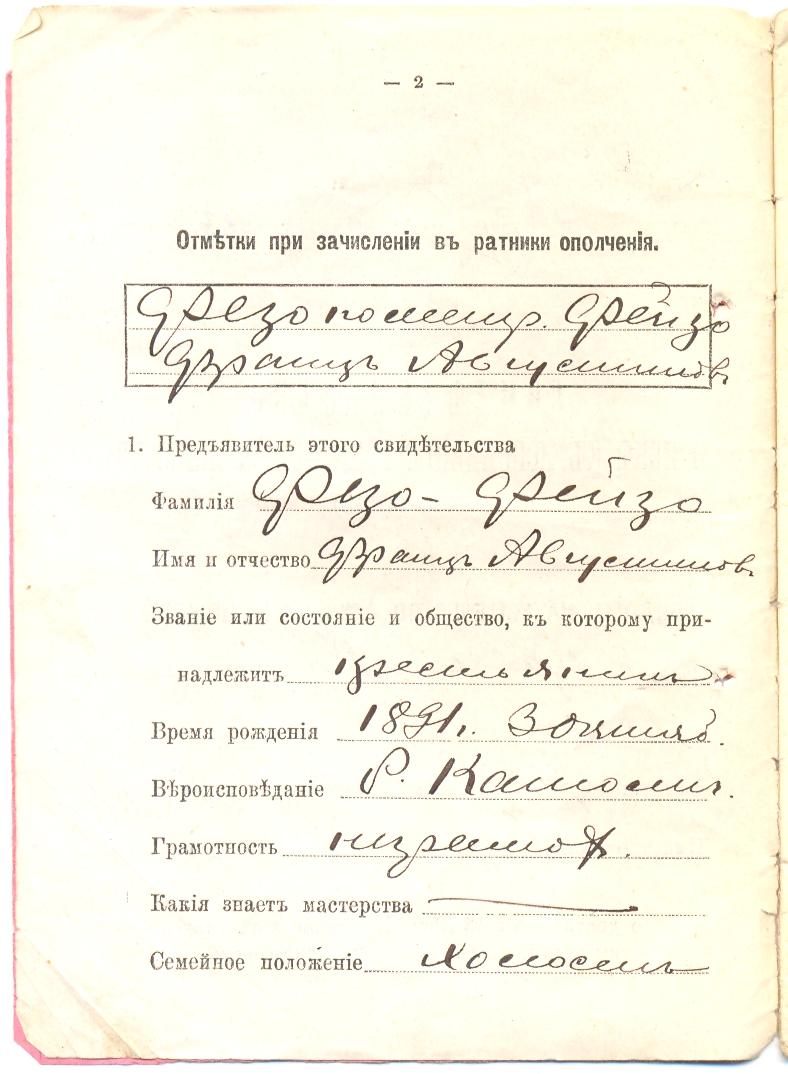 — 2 —
Отмѣтки при зачисленіи въ ратники ополченія.
Фрезо Фрейзо
Францъ Августиновъ
1. Предъявитель этого свидѣтельства
Фамилія Фрезо - Фрейзо
Имя и отчество Францъ Августиновъ
Званіе или состояніе и общество, къ которому при-
надлежитъ крестьянинъ
Время рожденія 1891г. 3 Октяб.
Вѣроисповѣданіе Р. Католич.
Грамотность
Какія знаетъ мастерства
Семейное положеніе Холостъ